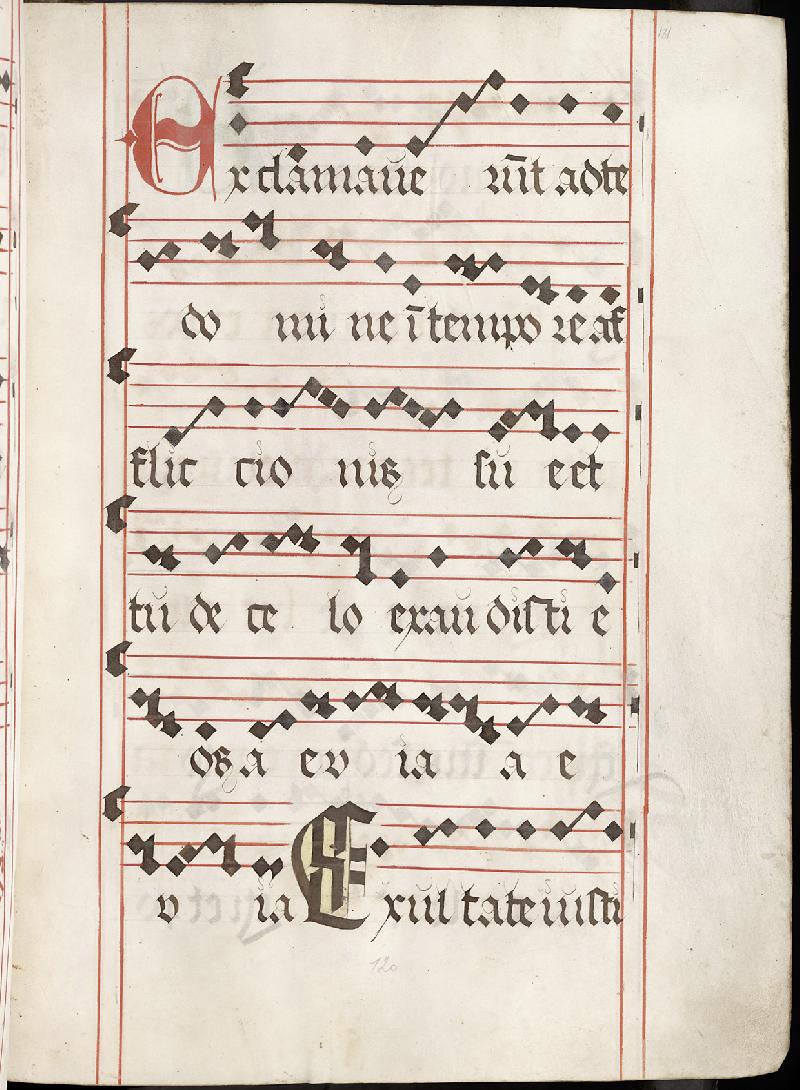 131
Exclamaue rūt adte
do mi ne ī tempo re af
flic cio nis su e et
tu de ce lo exau disti e
os a ev ia a e
v ia Exul tate iusti
120